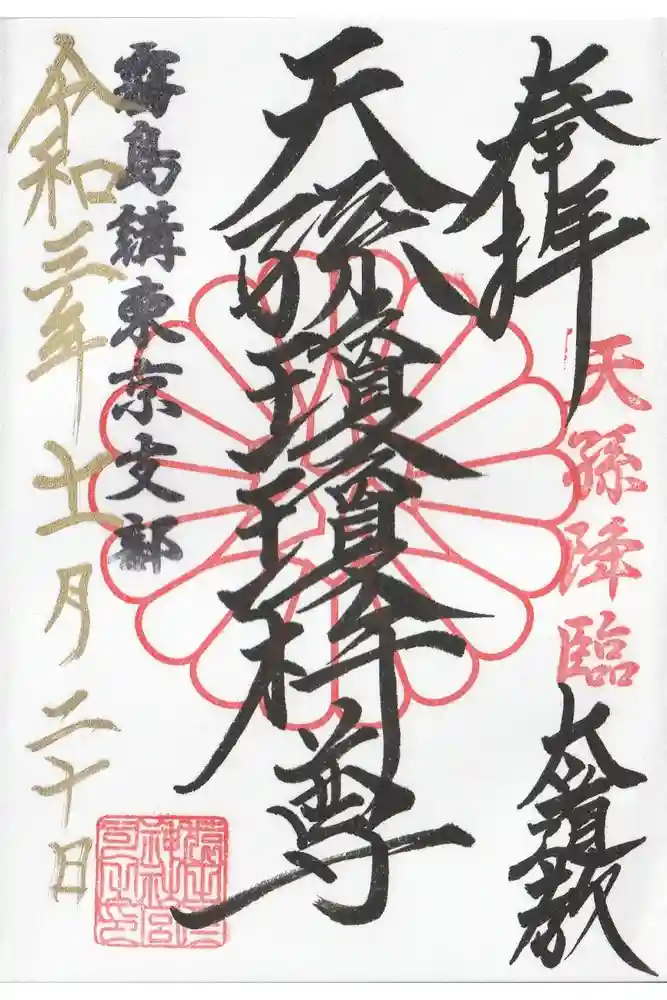 奉拝
天孫降臨
大道教
天孫瓊瓊杵尊
霧島講東京支部
令和三年十一月二十日